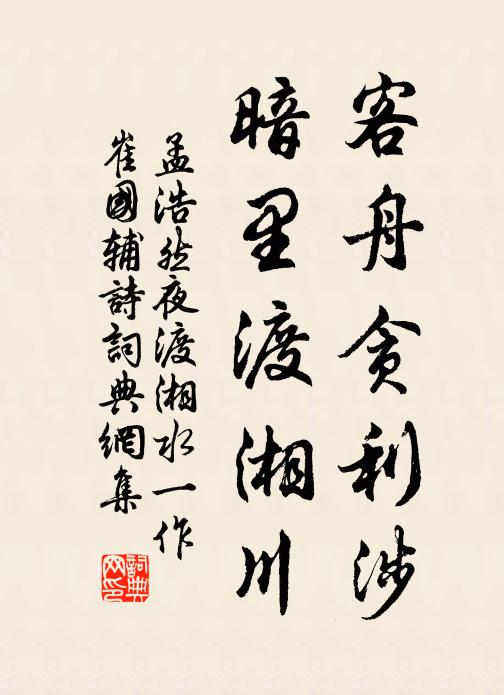 客舟贪利涉
暗里渡湘川
孟浩然夜渡湘水一作
崔國辅詩詞典網集
詞典网印